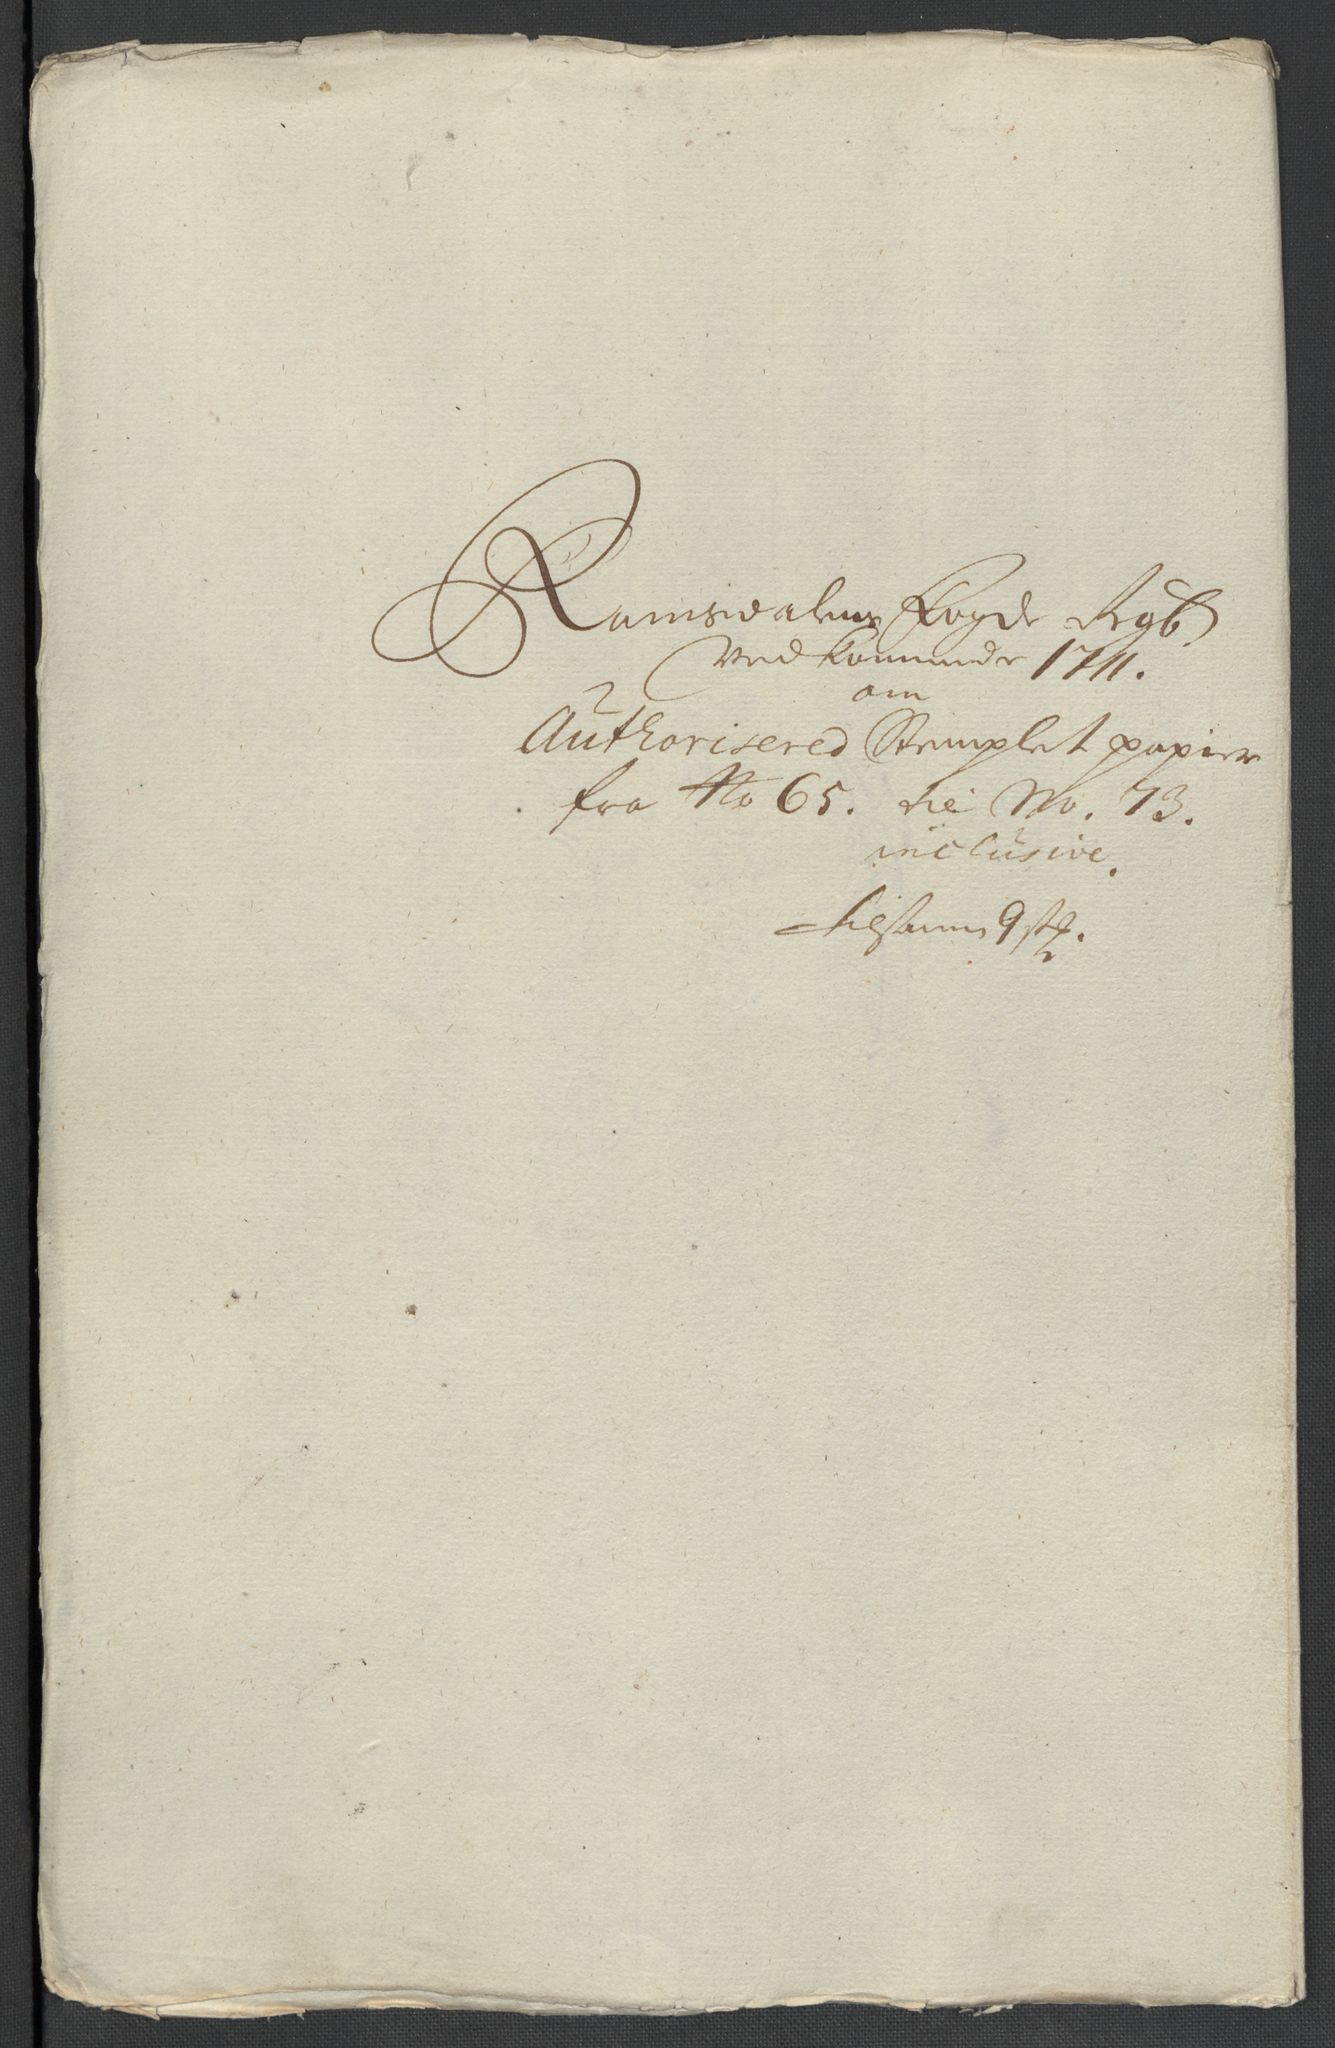 Romsdalens Fogde Regb
Vedkommende 1711.
om
Authorisered Stemplet papier
fra No 65. til No. 73.
inclusive.
tilsamn 9 st